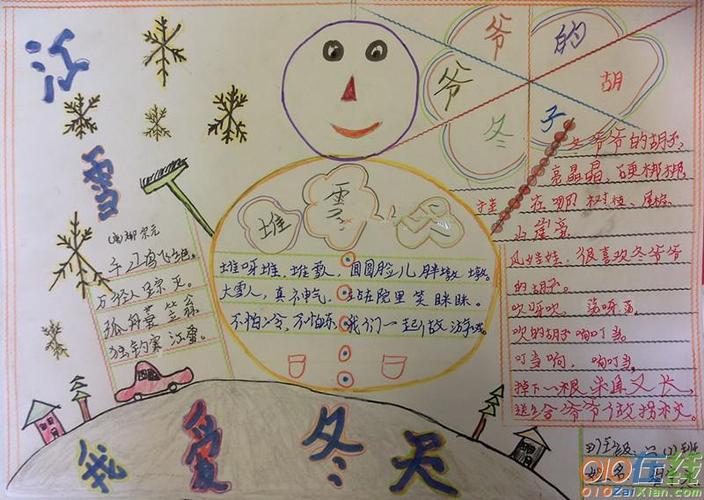 江雪
(唐)柳宗元
千山鸟飞绝。
万径人踪灭。
孤舟蓑笠翁
独钓寒江雪。
堆雪人
堆呀堆,堆雪人,圆圆脸儿胖墩墩。
大雪人,真神气,站在院里笑眯眯。
不怕冷,不怕冻,我们一起做游戏。
冬爷爷的胡子
冬爷爷的胡子,
亮晶晶,硬梆梆,
挂在 树枝、屋檐、
山崖旁
风娃娃,很喜欢冬爷爷
的胡子。
吹呀吹,荡呀荡,
吹的胡子响叮当。
叮当响,响叮当。
掉下一根来真又长,
送给爷爷做拐杖。
我爱冬天
班级:三(1)班
姓名:
010在线
010ZaiXian.com